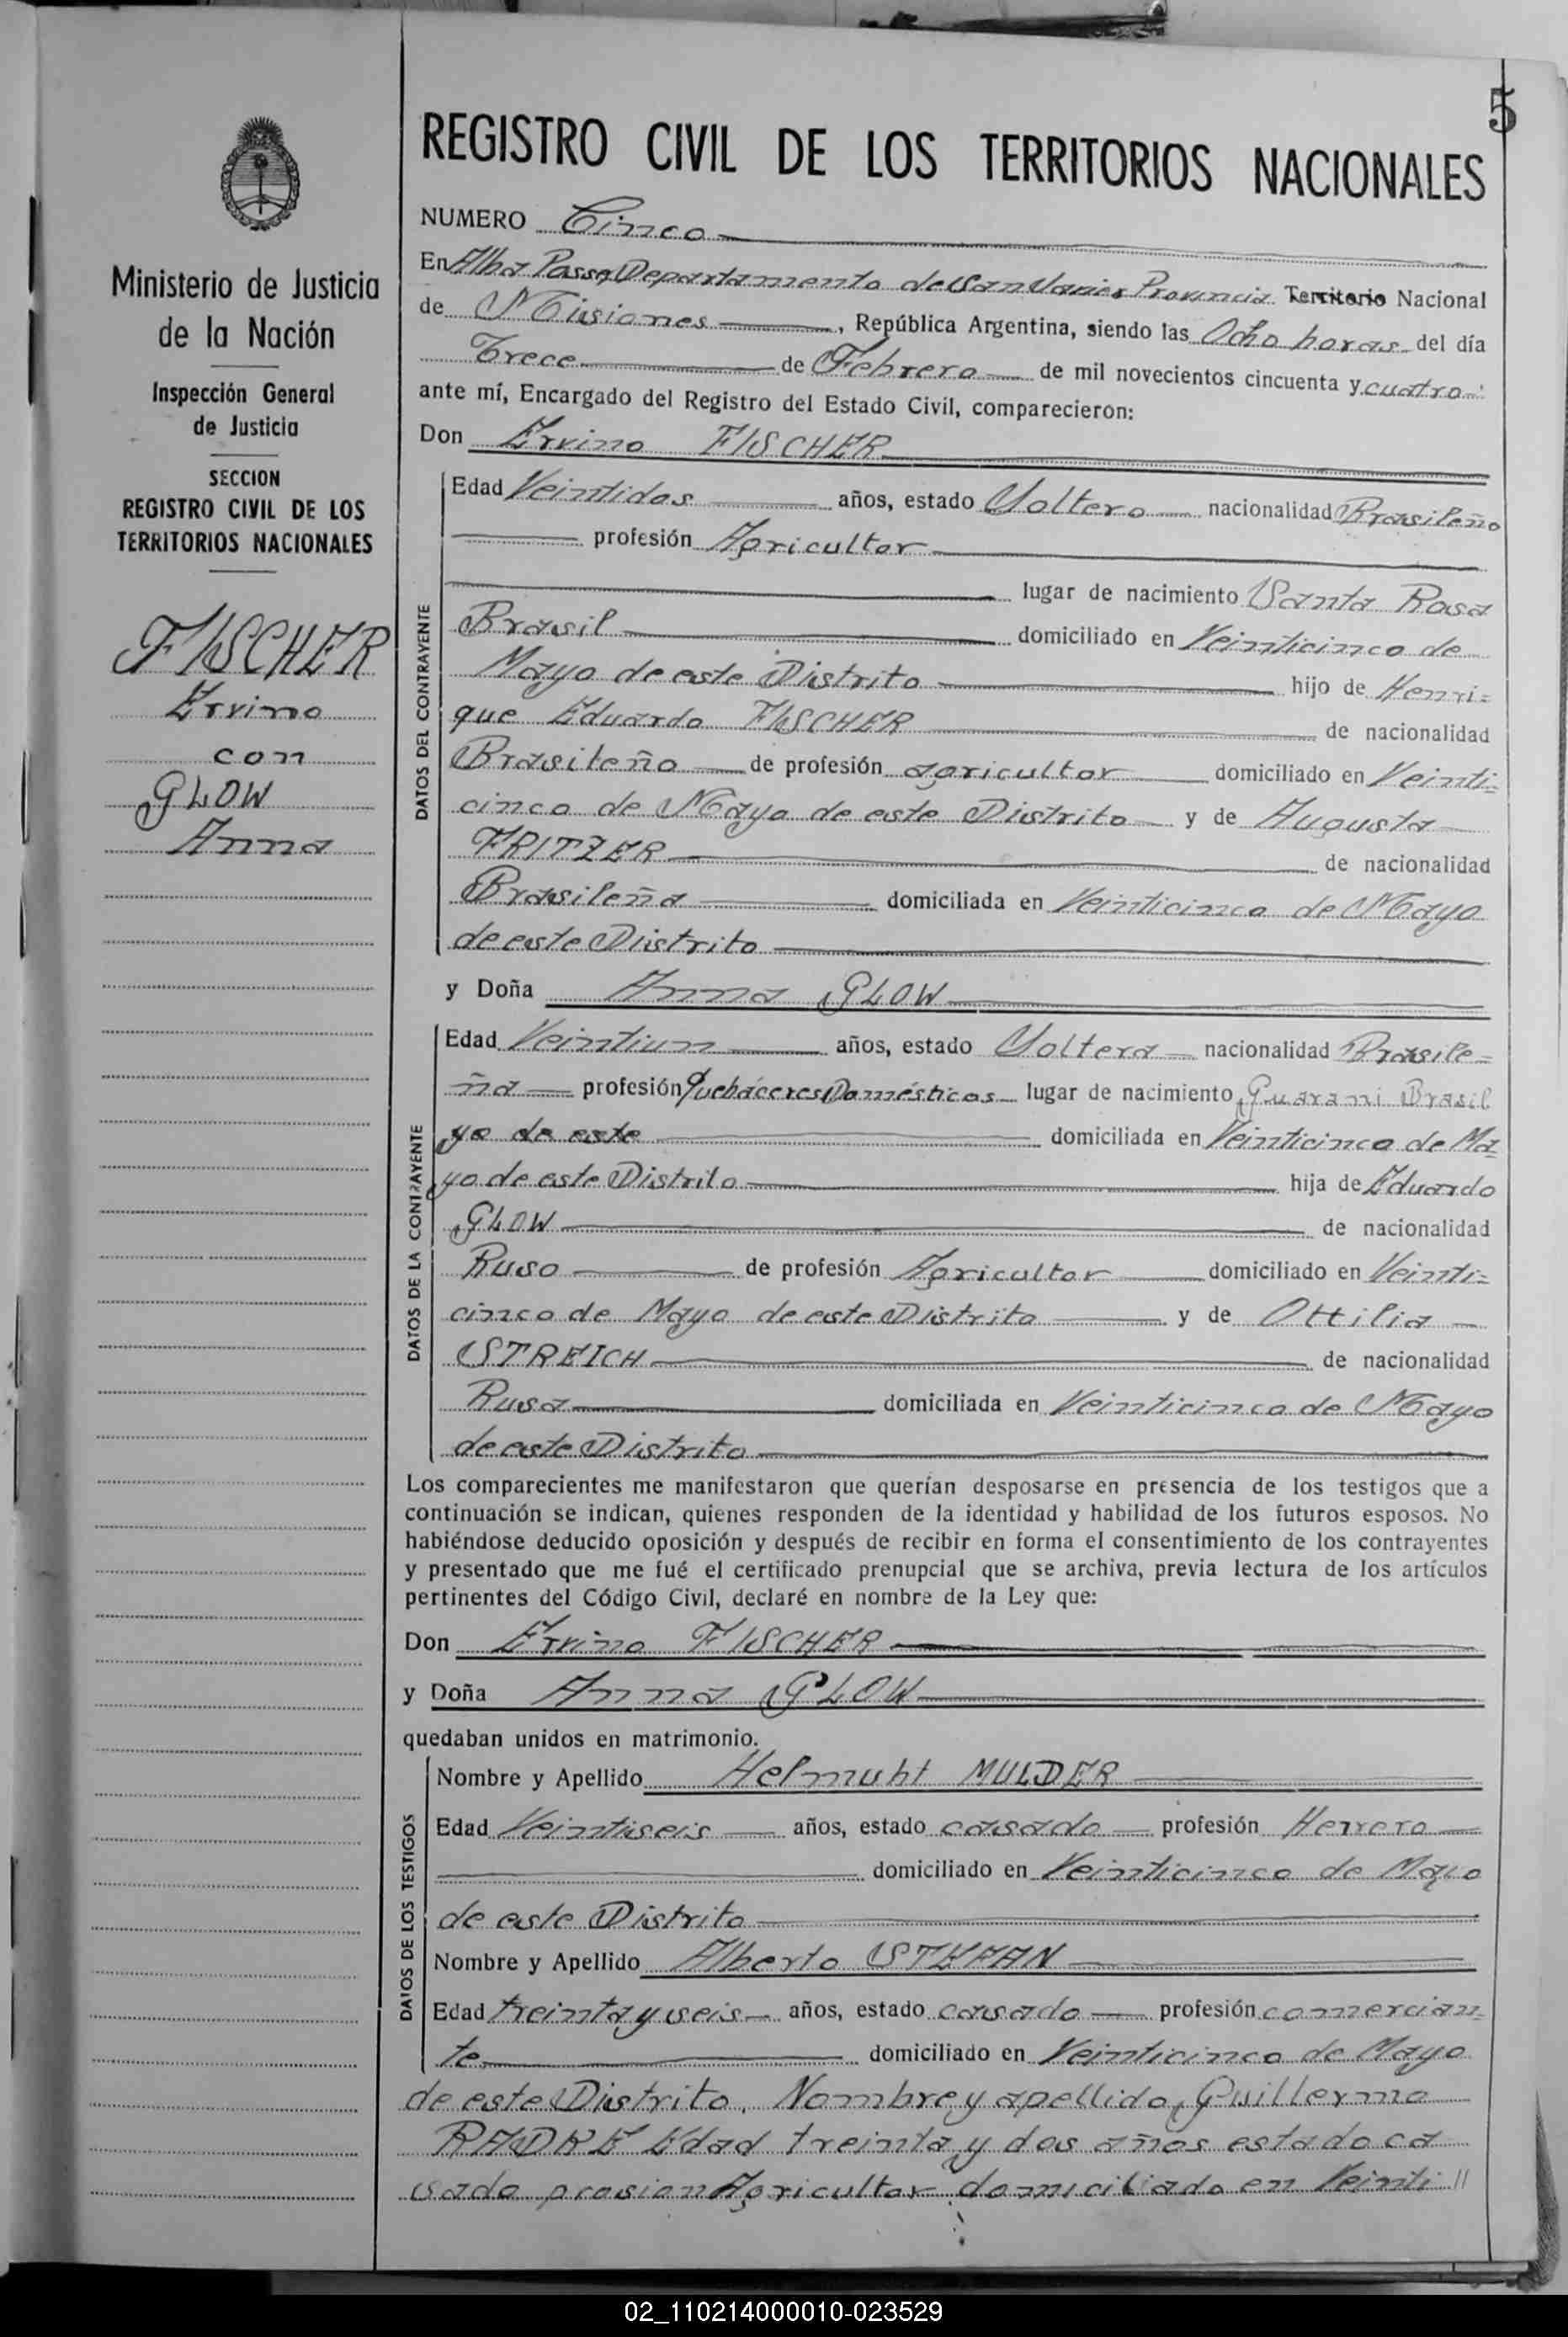 5
REGISTRO CIVIL DE LOS TERRITORIOS NACIONALES
Ministerio de Justicia
de la Nación
Inspección General
de Justicia
SECCION
REGISTRO CIVIL DE LOS
TERRITORIOS NACIONALES
FISCHER
Ervino
con
GLOW
Anna
NUMERO Cinco
En Alba Posse, Departamento de San Xavier Provincia Territorio Nacional
de Misiones, República Argentina, siendo las Ocho horas del día
Trece de Febrero de mil novecientos cincuenta y cuatro
ante mí, Encargado del Registro del Estado Civil, comparecieron:
Don Ervino FISCHER
DATOS DEL CONTRAYENTE
Edad Veintidos años, estado Soltero nacionalidad Brasileño
profesión Agricultor
lugar de nacimiento Santa Rosa
Brasil domiciliado en Veinticinco de
Mayo de este Distrito hijo de Henri=
que Eduardo FISCHER de nacionalidad
Brasileño de profesión agricultor domiciliado en Veinti=
cinco de Mayo de este Distrito y de Augusta
FRITZER de nacionalidad
Brasileña domiciliada en Veinticinco de Mayo
de este Distrito
y Doña Anna GLOW
DATOS DE LA CONTRAYENTE
Edad Veintiun años, estado Soltera nacionalidad Brasile=
ña profesión Quehaceres Domésticos lugar de nacimiento Guarani Brasil
yo de este domiciliada en Veinticinco de Ma=
yo de este Distrito hija de Eduardo
GLOW de nacionalidad
Ruso de profesión Agricultor domiciliado en Veinti=
cinco de Mayo de este Distrito y de Ottilia
STREICH de nacionalidad
Rusa domiciliada en Veinticinco de Mayo
de este Distrito
Los comparecientes me manifestaron que querían desposarse en presencia de los testigos que a
continuación se indican, quienes responden de la identidad y habilidad de los futuros esposos. No
habiéndose deducido oposición y después de recibir en forma el consentimiento de los contrayentes
y presentado que me fué el certificado prenupcial que se archiva, previa lectura de los artículos
pertinentes del Código Civil, declaré en nombre de la Ley que:
Don Ervino FISCHER
y Doña Anna GLOW
quedaban unidos en matrimonio.
DATOS DE LOS TESTIGOS
Nombre y Apellido Helmuht MULDER
Edad Veintiseis años, estado casado profesión Herrero
domiciliado en Veinticinco de Mayo
de este Distrito
Nombre y Apellido Alberto STEFAN
Edad treinta y seis años, estado casado profesión comercian=
te domiciliado en Veinticinco de Mayo
de este Distrito. Nombre y apellido, Guillermo
RADKE Edad treinta y dos años estado ca
sado prosion Agricultor domiciliado en Veinti //
02_110214000010-023529